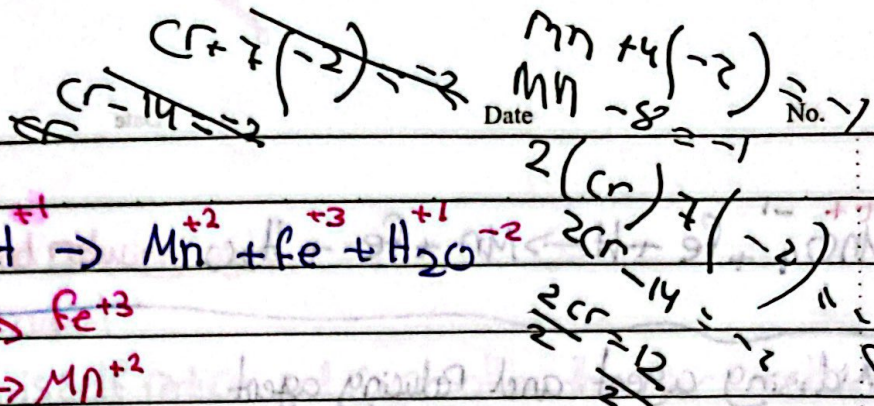 Cr + 7 (-2) = -2
Cr - 14 = -2
Mn + 4(-2) = -1
Mn - 8 = -1
Date No.
2(Cr) 7(-2) =
2Cr - 14 = -2
2Cr/2 = 12/2
H⁺¹ → Mn⁺² + Fe⁺³ + H₂⁺¹O⁻²
→ Fe⁺³
→ Mn⁺²